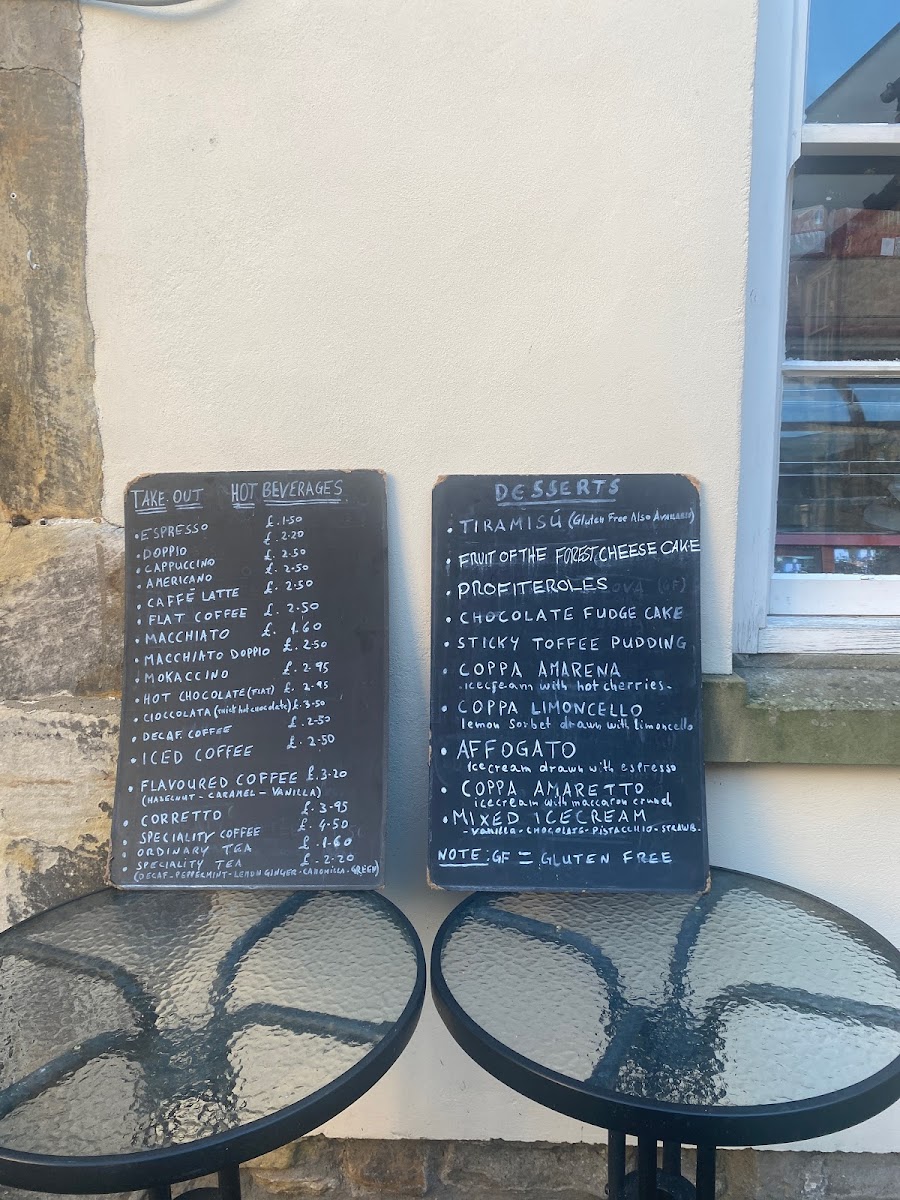 TAKE OUT HOT BEVERAGES
• ESPRESSO £.1.50
• DOPPIO £.2.20
• CAPPUCCINO £.2.50
• AMERICANO £.2.50
• CAFFÈ LATTE £.2.50
• FLAT COFFEE £.2.50
• MACCHIATO £.1.60
• MACCHIATO DOPPIO £.2.50
• MOKACCINO £.2.95
• HOT CHOCOLATE (FLAT) £.2.95
• CIOCCOLATA (thick hot chocolate) £.3.50
• DECAF. COFFEE £.2.50
• ICED COFFEE £.2.50
• FLAVOURED COFFEE £.3.20
(HAZELNUT - CARAMEL - VANILLA)
• CORRETTO £.3.95
• SPECIALITY COFFEE £.4.50
• ORDINARY TEA £.1.60
• SPECIALITY TEA £.2.20
(DECAF - PEPPERMINT - LEMON GINGER - CAMOMILLA - GREEN)
DESSERTS
• TIRAMISÚ (Gluten Free Also Available)
• FRUIT OF THE FOREST CHEESE CAKE
• PROFITEROLES
• CHOCOLATE FUDGE CAKE
• STICKY TOFFEE PUDDING
• COPPA AMARENA
icecream with hot cherries-
• COPPA LIMONCELLO
lemon sorbet drawn with limoncello
• AFFOGATO
Icecream drawn with espresso
• COPPA AMARETTO
icecream with maccaron crunch
• MIXED ICECREAM
- VANILLA - CHOCOLATE - PISTACCHIO - STRAWB.
NOTE: GF = GLUTEN FREE